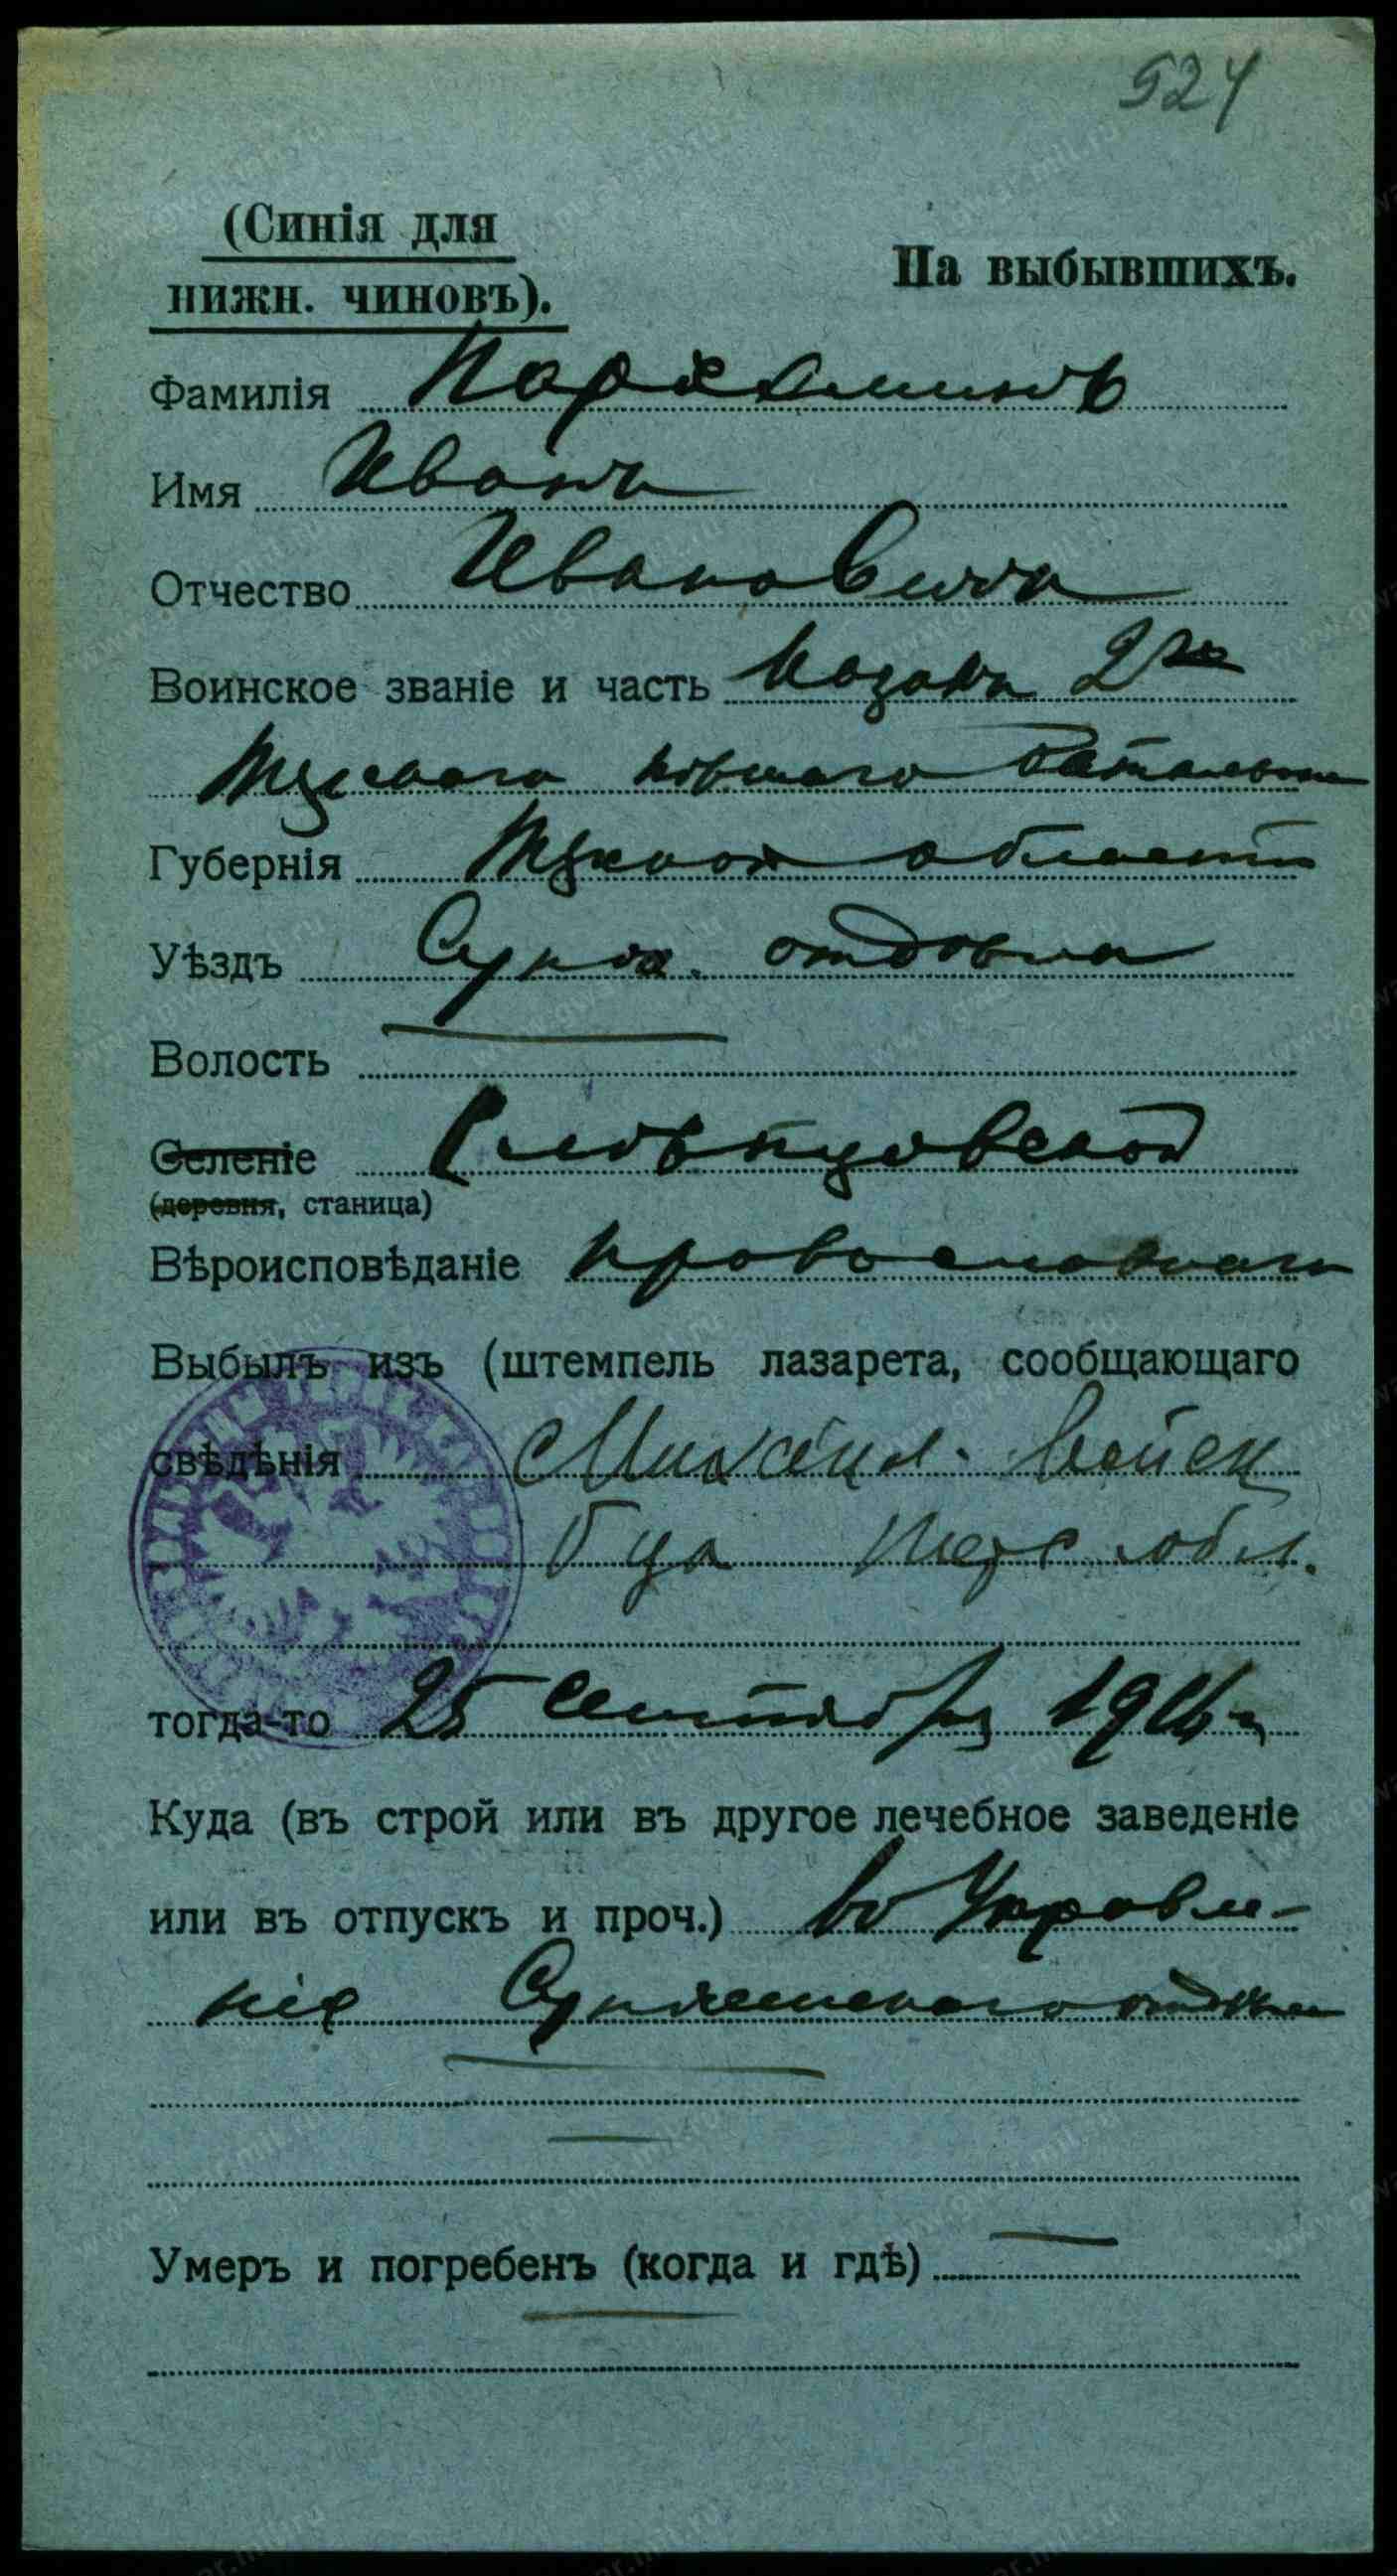 524
(Синія для
нижн. чиновъ).
На выбывшихъ.
Фамилія
Имя Иванъ
Отчество Ивановичъ
Воинское званіе и часть Казакъ 2го
пѣшаго баталіона
Губернія области
Уѣздъ Сунж. отдѣла
Волость
Селеніе Слѣпцовской
(деревня, станица)
Вѣроисповѣданіе православнаго
Выбылъ изъ (штемпель лазарета, сообщающаго
свѣдѣнія Войск
б-ца Терс. обл.
тогда-то 25 сентября 1914 г.
Куда (въ строй или въ другое лечебное заведеніе
или въ отпускъ и проч.) въ Управле-
ніе Сунженскаго отдѣла
Умеръ и погребенъ (когда и гдѣ)